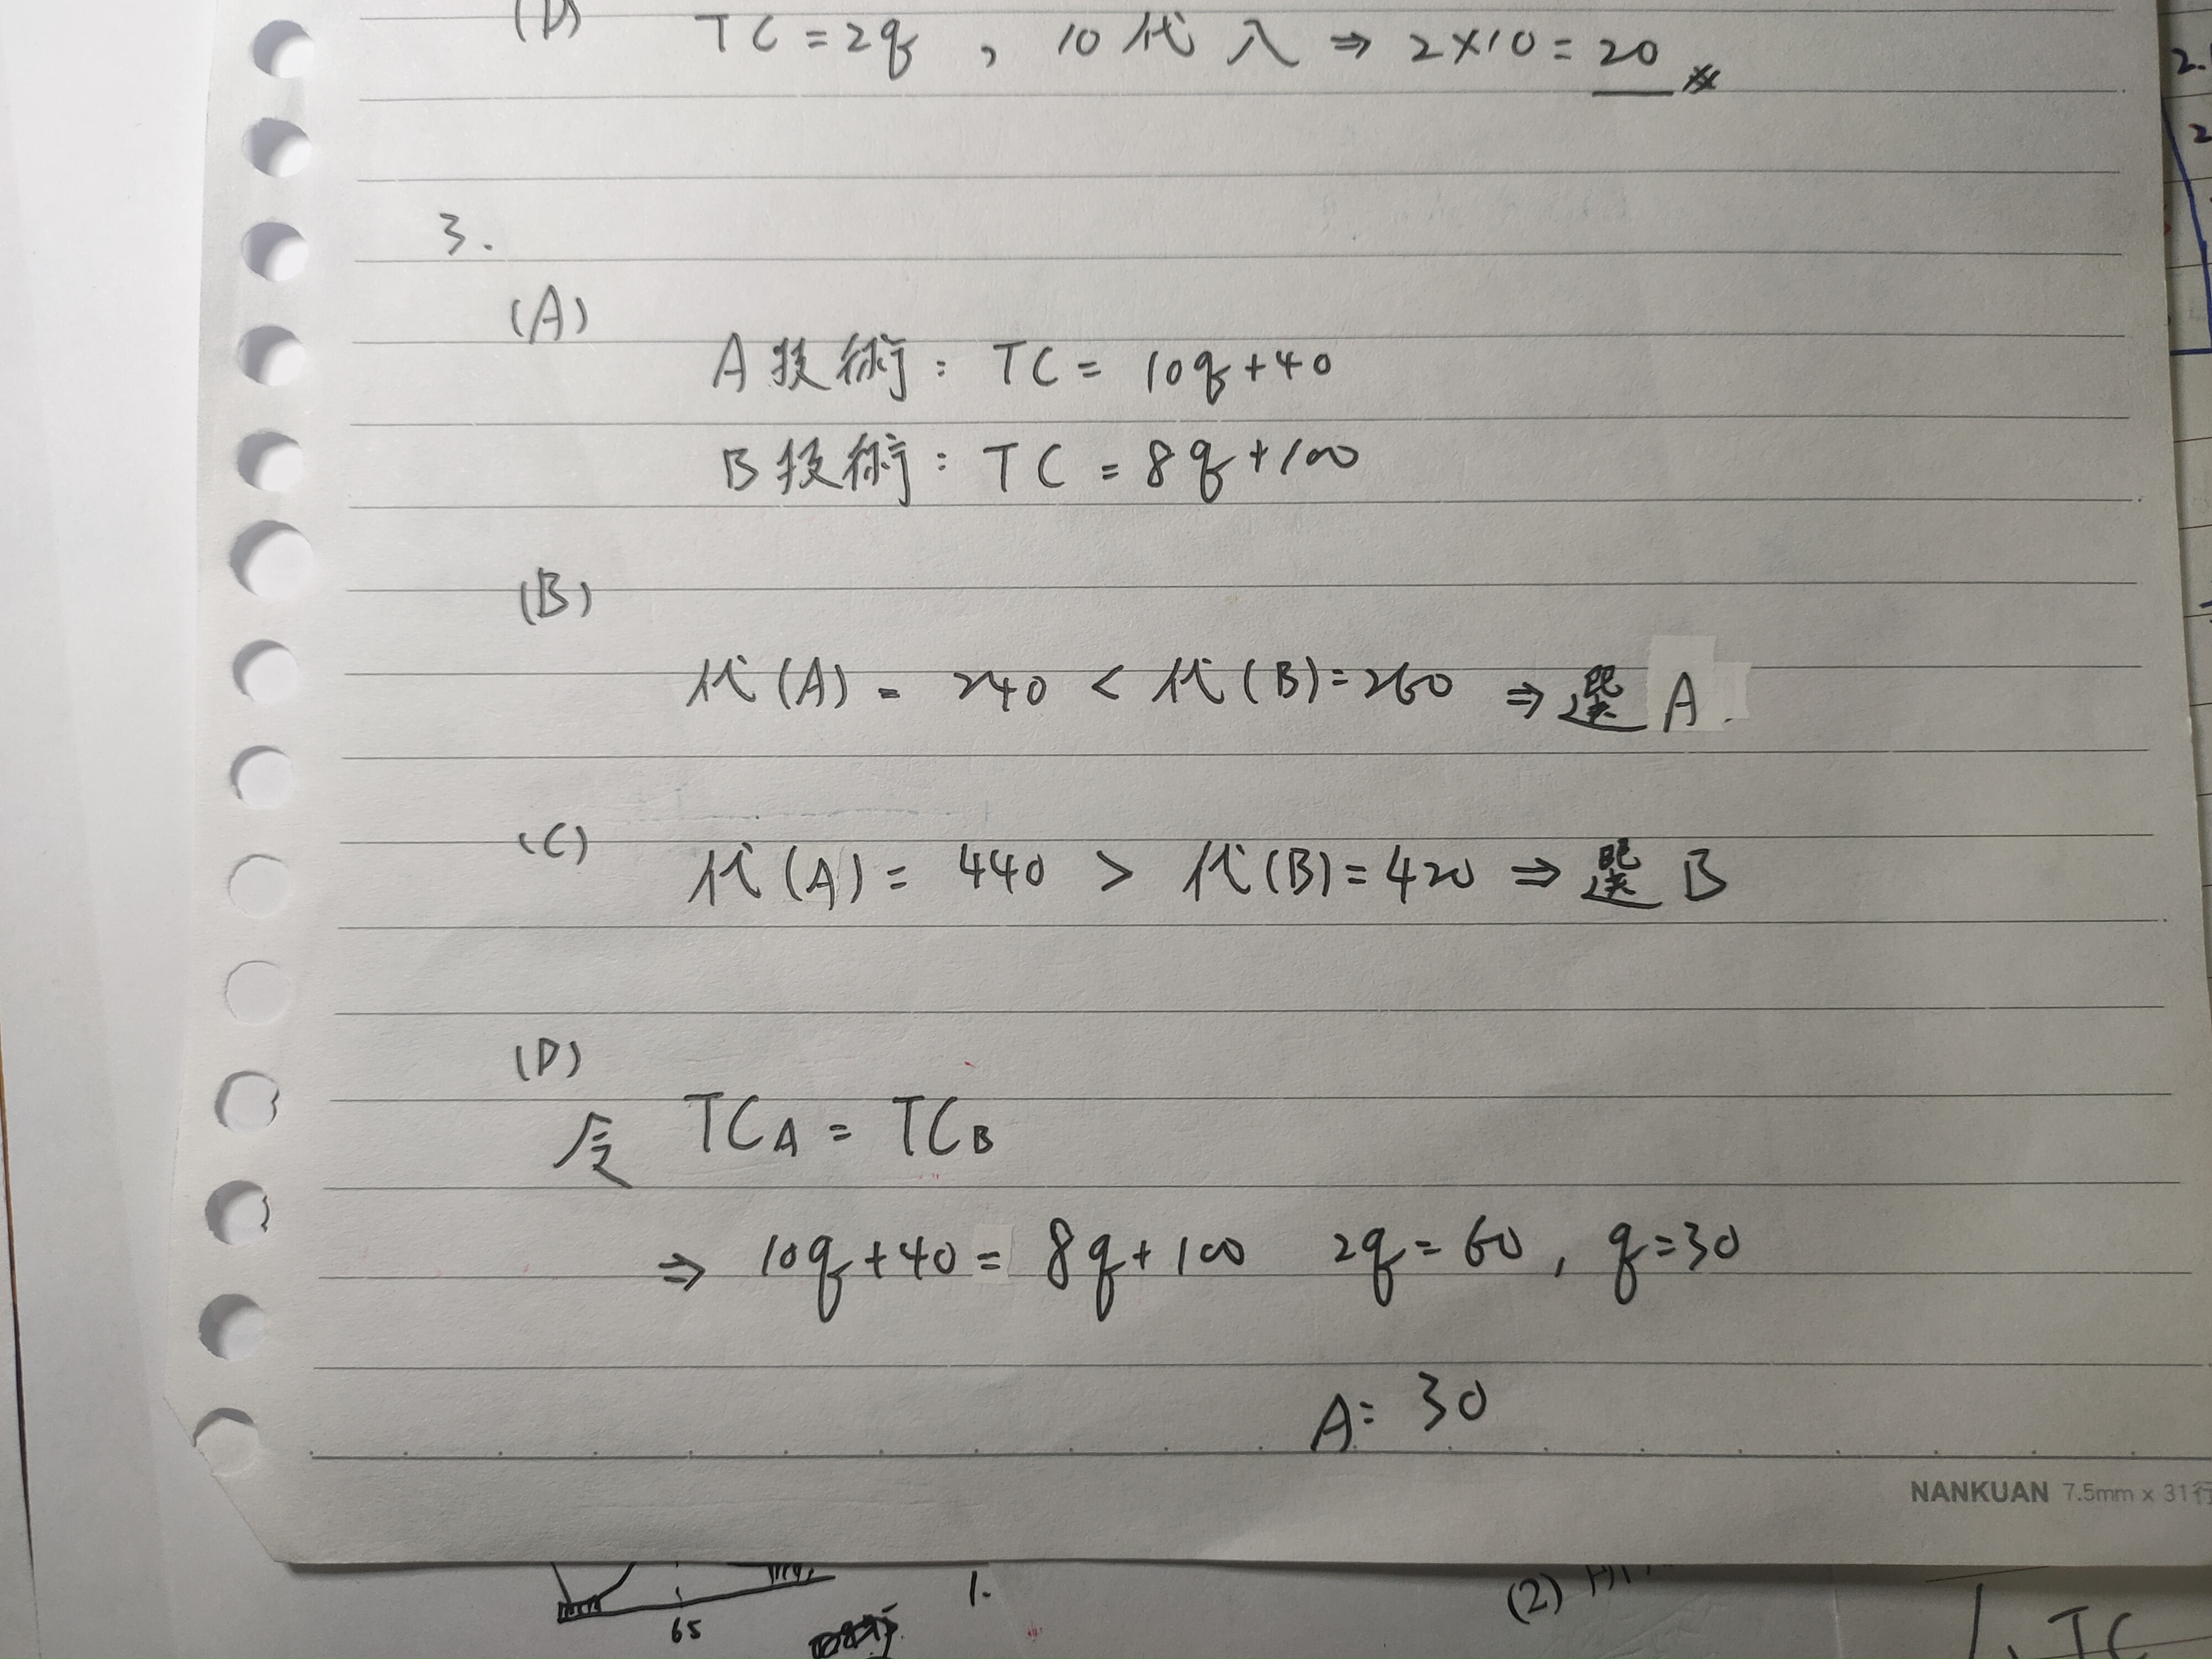 (D) TC = 2q , 10 代入 ⇒ 2×10 = 20
3.
(A)
A 技術: TC = 10q+40
B 技術: TC = 8q+100
(B)
代(A) = 240 < 代(B)=260 ⇒ 選 A.
(C) 代(A) = 440 > 代(B)=420 ⇒ 選 B
(D)
令 TCA = TCB
⇒ 10q+40 = 8q+100 2q = 60 , q=30
A= 30
NANKUAN 7.5mm x 31行
65
1.
(2)
TC